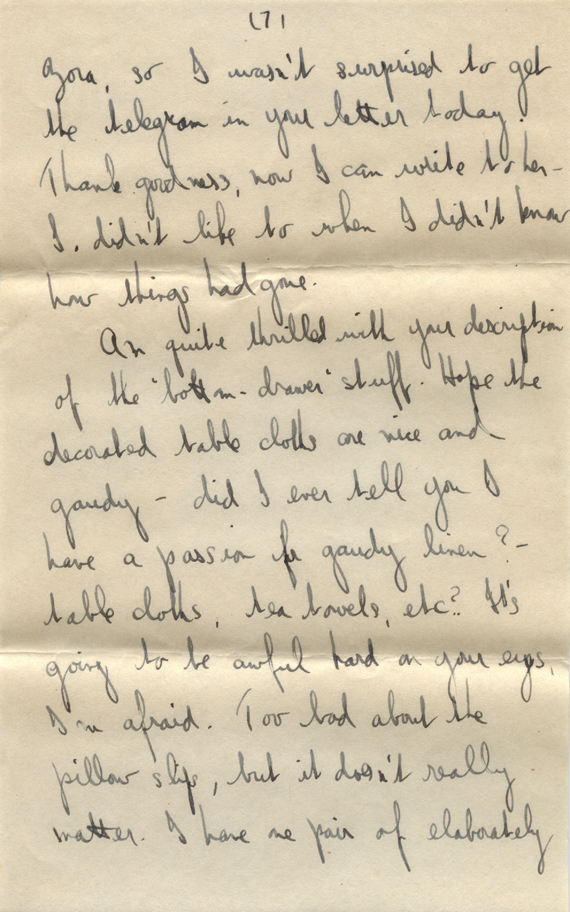 (7)
Zora, so I wasn't surprised to get
the telegram in your letter today.
Thank goodness, now I can write to her -
I didn't like to when I didn't know
how things had gone.
Am quite thrilled with your description
of the "bottom-drawer" stuff. Hope the
decorated table cloths are nice and
gaudy - did I ever tell you I
have a passion for gaudy linen? -
table cloths, tea towels, etc? It's
going to be awful hard on your eyes,
I'm afraid. Too bad about the
pillow slip, but it doesn't really
matter. I have one pair of elaborately